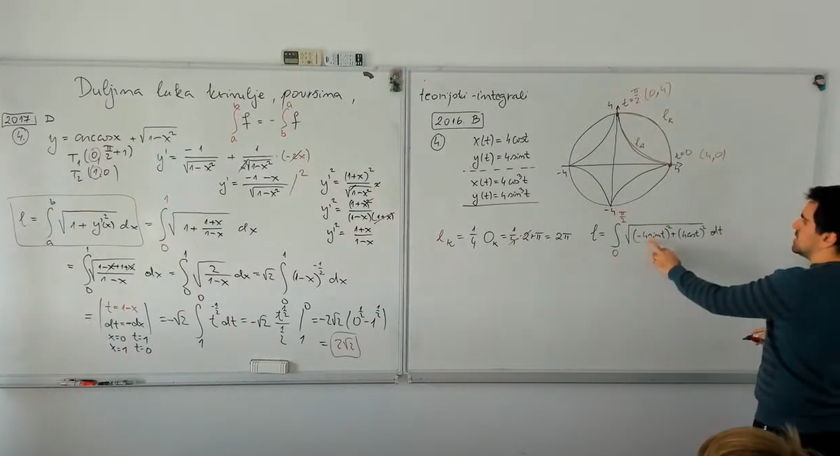 Duljina luka krivulje, površina,
2017. D
∫_a^b f = -∫_b^a f
4. y = arccosx + √(1-x²)
T₁ (0, π/2+1)
T₂ (1, 0)
y' = -1/√(1-x²) + 1/(2√(1-x²)) · (-2x)
y' = (-1-x)/√(1-x²) /²
y'² = (1+x)²/√(1-x²)²
y'² = (1+x)²/((1-x)(1+x))
y'² = (1+x)/(1-x)
l = ∫_a^b √(1+y'²(x)) dx = ∫_0^1 √(1+(1+x)/(1-x)) dx
= ∫_0^1 √((1-x+1+x)/(1-x)) dx = ∫_0^1 √(2/(1-x)) dx = √2 ∫_0^1 (1-x)^(-1/2) dx
= | t=1-x
dt=-dx
x=0 t=1
x=1 t=0 | = -√2 ∫_1^0 t^(-1/2) dt = -√2 t^(1/2)/(1/2) |_1^0 = -2√2 (0^(1/2) - 1^(1/2))
= 2√2
teorijski-integrali
2016. B
4. x(t) = 4cost
y(t) = 4sint
x(t) = 4cos³t
y(t) = 4sin³t
t=π/2 (0,4)
4
l_k
l_A
t=0 (4,0)
-4
4
-4
l_k = 1/4 O_k = 1/4 · 2·4π = 2π
l = ∫_0^(π/2) √((-4sint)²+(4cost)²) dt